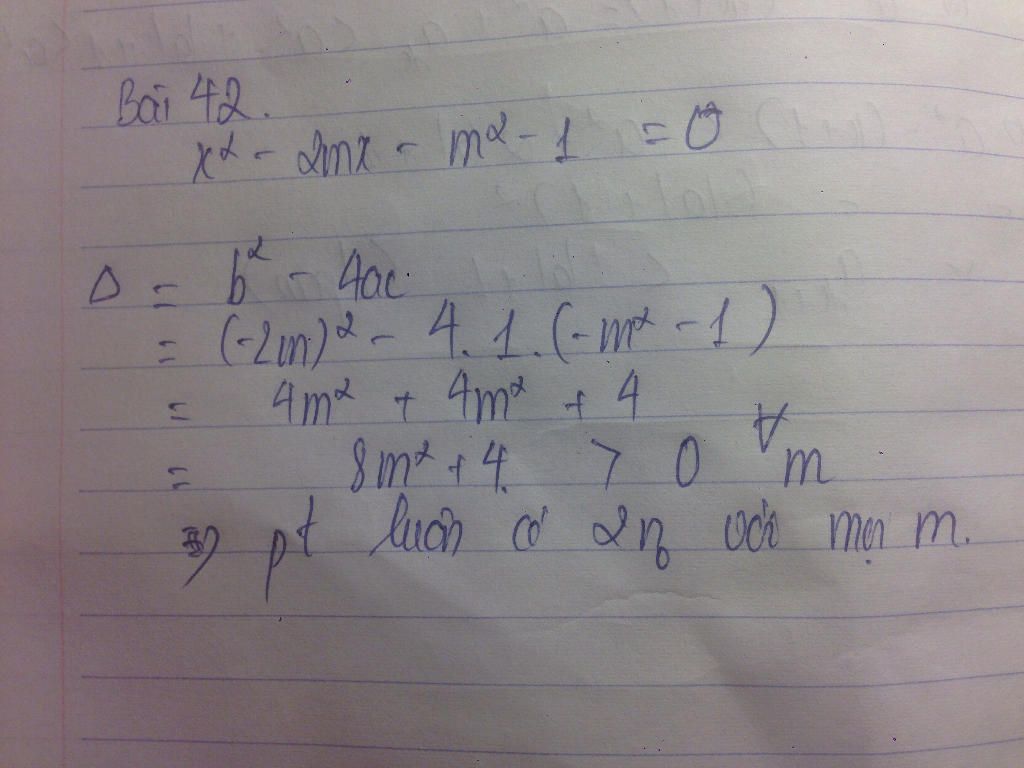 Bài 42.
x² - 2mx - m² - 1 = 0
Δ = b² - 4ac
= (-2m)² - 4.1.(-m² - 1)
= 4m² + 4m² + 4
= 8m² + 4 > 0 ∀m
=> pt luôn có 2n₀ với mọi m.